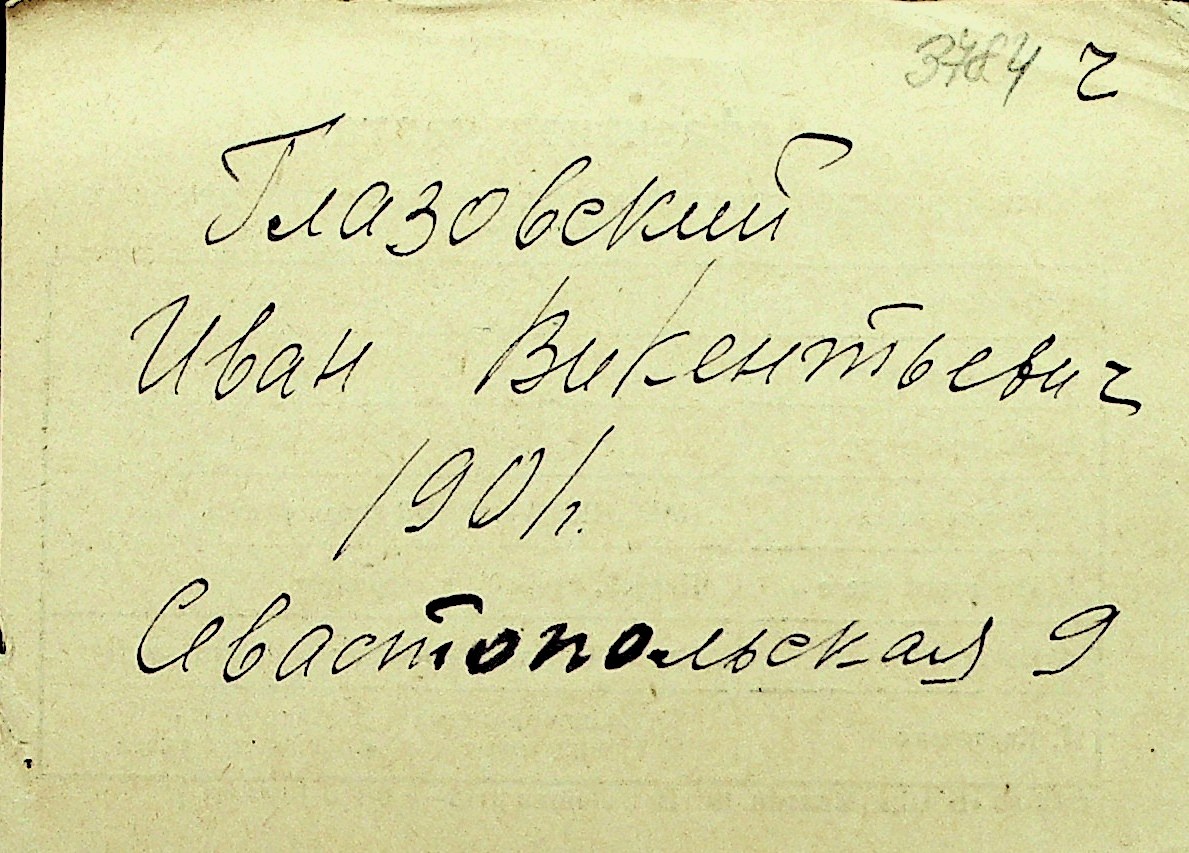 3784 ч
Глазовский
Иван Викентьевич
1901г.
Севастопольская 9